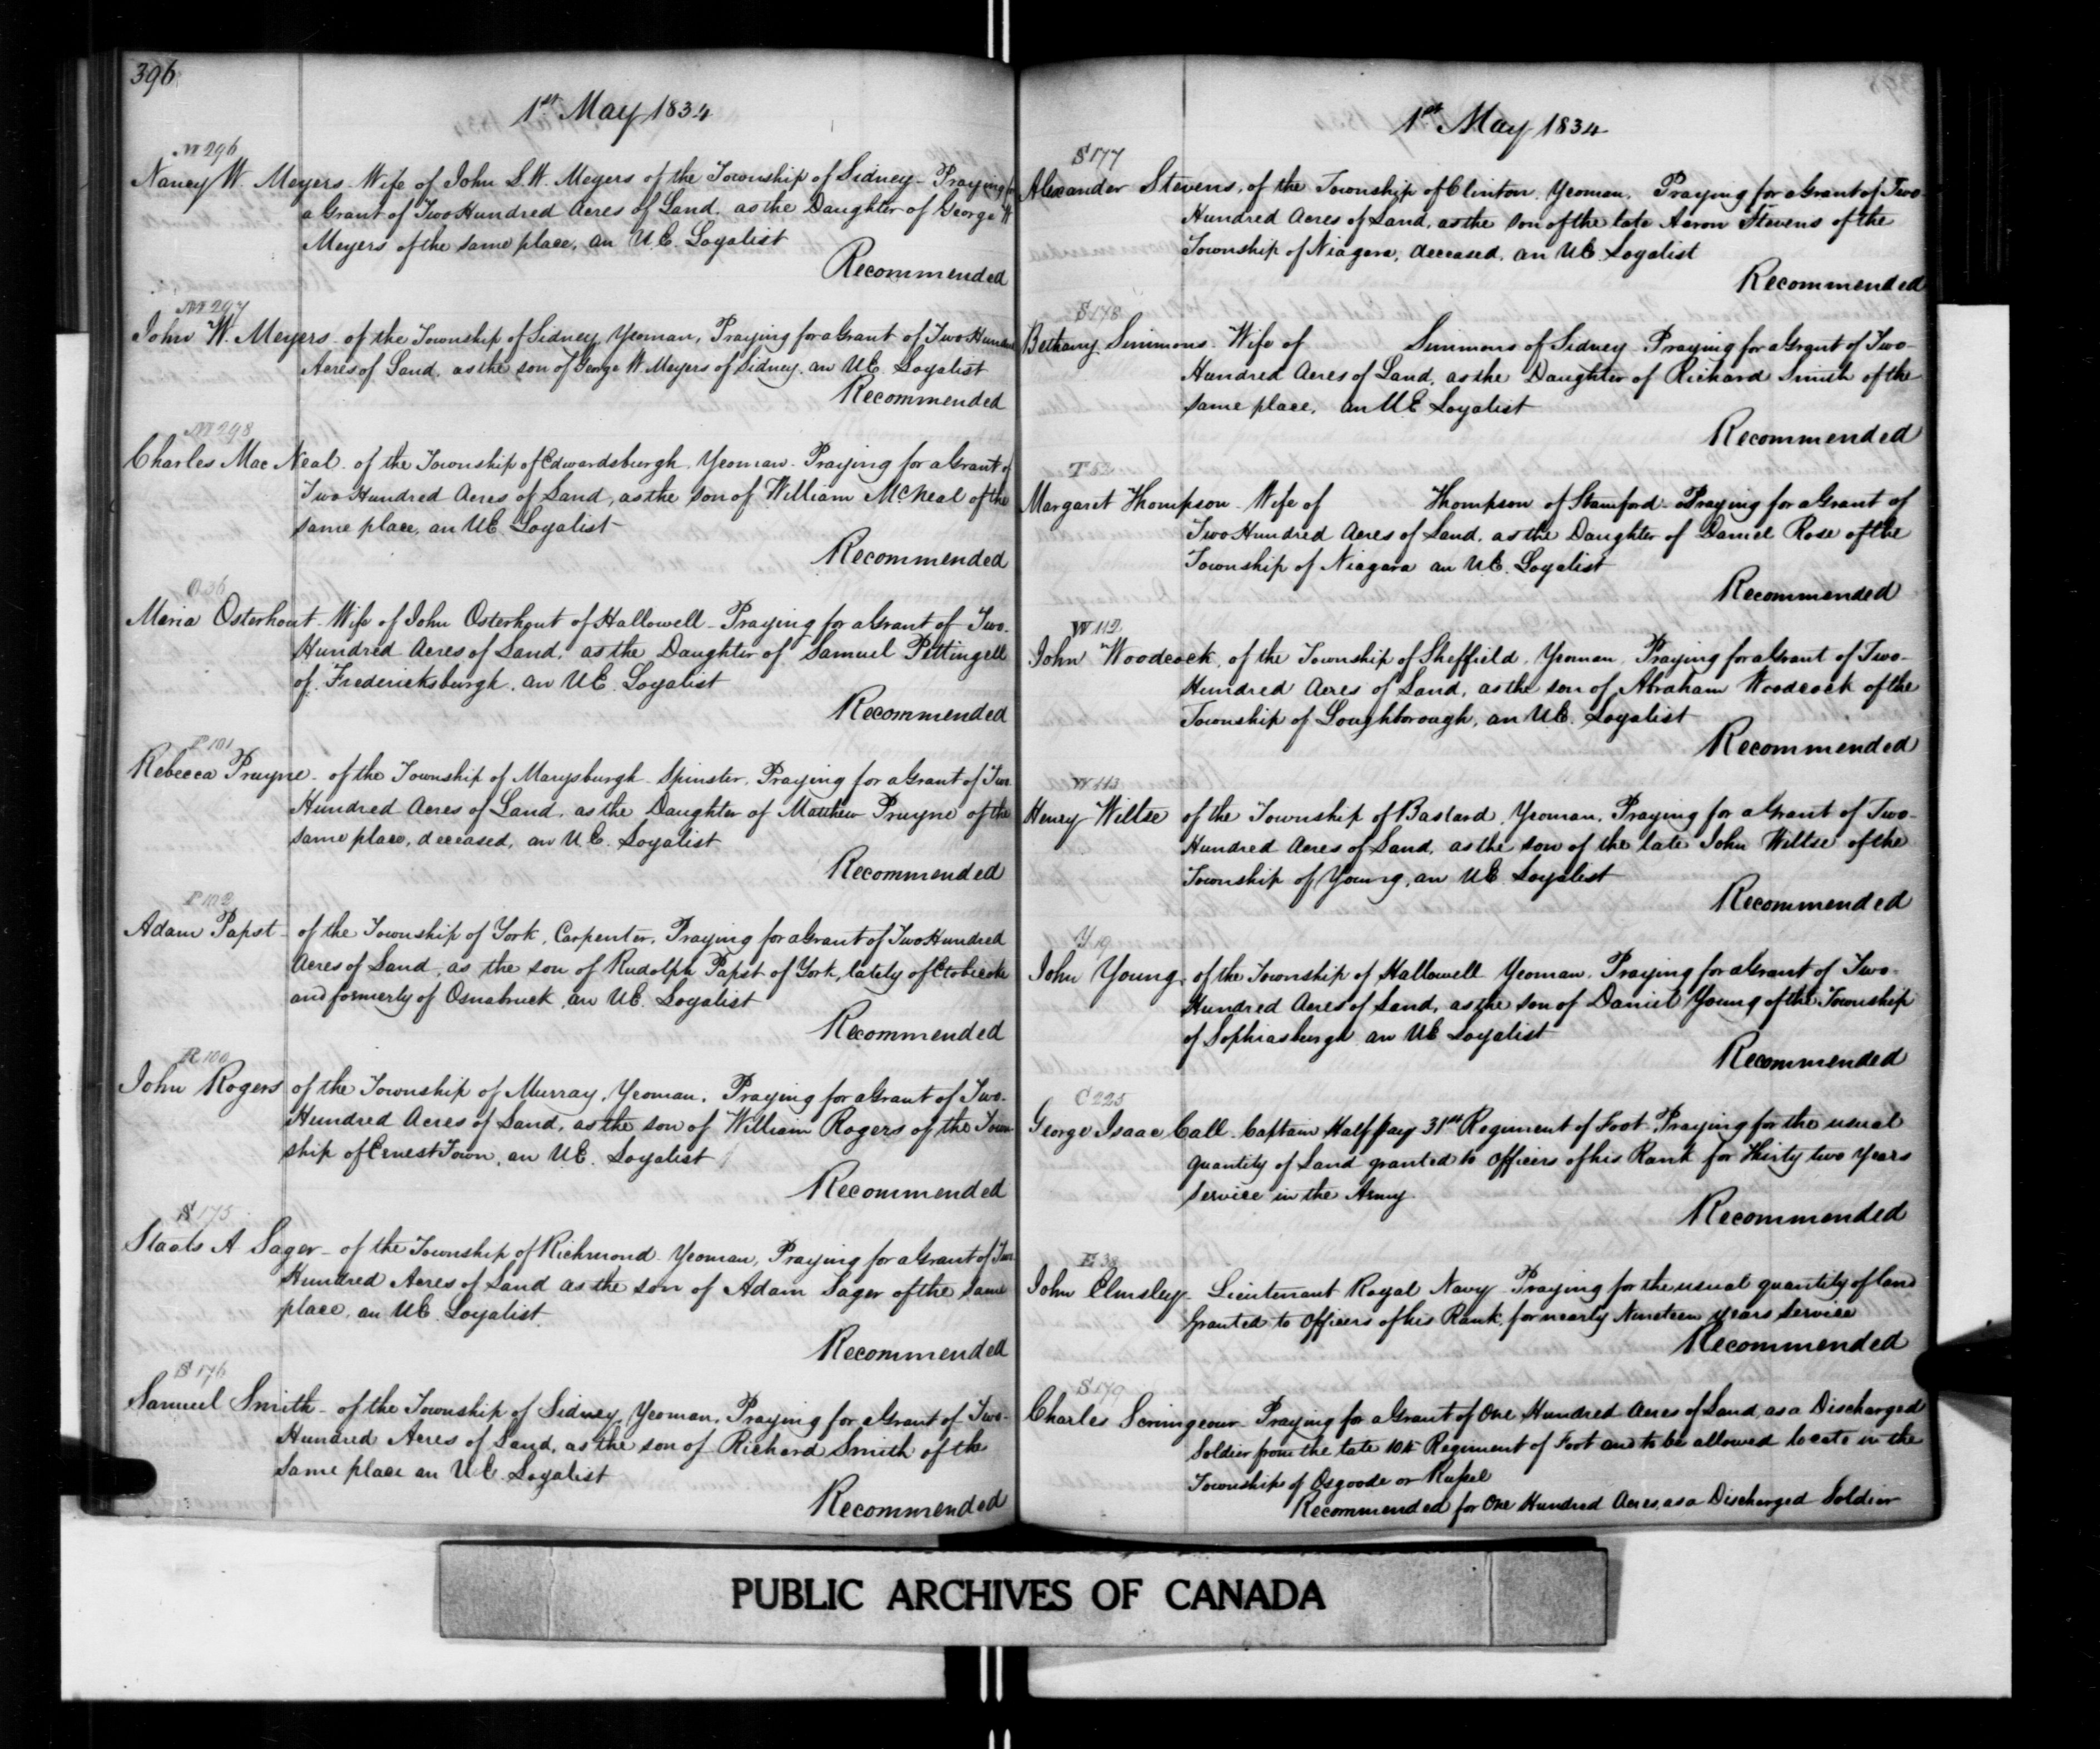 396
1st May 1834
M 296
Nancy W. Meyers - Wife of John S. W. Meyers of the Township of Sidney - Praying for
a Grant of Two Hundred Acres of Land, as the Daughter of George W
Meyers of the same place, an U.E. Loyalist
Recommended
M 297
John W. Meyers - of the Township of Sidney, Yeoman, Praying for a Grant of Two Hundred
Acres of Land, as the son of George W. Meyers of Sidney, an UE. Loyalist
Recommended
M 298
Charles Mac Neal - of the Township of Edwardsburgh, Yeoman - Praying for a Grant of
Two Hundred Acres of Land, as the son of William McNeal of the
same place, an UE. Loyalist
Recommended
O 36
Maria Osterhout - Wife of John Osterhout of Hallowell - Praying for a Grant of Two-
Hundred Acres of Land, as the Daughter of Samuel Pettingell
of Fredericksburgh, an UE. Loyalist
Recommended
P 101
Rebecca Pruyne - of the Township of Marysburgh - Spinster, Praying for a Grant of Two
Hundred Acres of Land, as the Daughter of Matthew Pruyne of the
same place, deceased, an U.E. Loyalist
Recommended
P 102
Adam Papst - of the Township of York, Carpenter, Praying for a Grant of Two Hundred
Acres of Land, as the son of Rudolph Papst of York, lately of Etobicoke
and formerly of Osnabruck, an UE. Loyalist
Recommended
R 100
John Rogers of the Township of Murray, Yeoman, Praying for a Grant of Two-
Hundred Acres of Land, as the son of William Rogers of the Town
ship of Ernest Town, an UE. Loyalist
Recommended
S 175
Staats A Sager - of the Township of Richmond - Yeoman, Praying for a Grant of Two
Hundred Acres of Land as the son of Adam Sager of the same
place, an UE. Loyalist
Recommended
S 176
Samuel Smith - of the Township of Sidney, Yeoman, Praying for a Grant of Two-
Hundred Acres of Land, as the son of Richard Smith of the
same place an U.E. Loyalist
Recommended
1st May 1834
S 177
Alexander Stevens, of the Township of Clinton, Yeoman, Praying for a Grant of Two-
Hundred Acres of Land, as the son of the late Aaron Stevens of the
Township of Niagara, deceased, an UE. Loyalist
Recommended
S 178
Bethany Simmons - Wife of Simmons of Sidney - Praying for a Grant of Two-
Hundred Acres of Land, as the Daughter of Richard Smith of the
same place, an U.E Loyalist
Recommended
T 52
Margaret Thompson - Wife of Thompson of Stamford - Praying for a Grant of
Two Hundred Acres of Land, as the Daughter of Daniel Rose of the
Township of Niagara an U.E. Loyalist
Recommended
W 112
John Woodcock, of the Township of Sheffield, Yeoman, Praying for a Grant of Two-
Hundred Acres of Land, as the son of Abraham Woodcock of the
Township of Loughborough, an UE. Loyalist
Recommended
W 113
Henry Wiltse of the Township of Bastard, Yeoman, Praying for a Grant of Two-
Hundred Acres of Land, as the son of the late John Wiltse of the
Township of Young, an UE Loyalist
Recommended
Y 19
John Young, of the Township of Hallowell Yeoman, Praying for a Grant of Two-
Hundred Acres of Land, as the son of Daniel Young of the Township
of Sophiasburgh an UE Loyalist
Recommended
C 225
George Isaac Call - Captain Half pay 31st Regiment of Foot - Praying for the usual
quantity of Land granted to Officers of his Rank for Thirty two years
service in the Army
Recommended
E 38
John Elmsley - Lieutenant Royal Navy - Praying for the usual quantity of land
Granted to Officers of his Rank, for nearly Nineteen years service
Recommended
S 179
Charles Scrimgeour - Praying for a Grant of One Hundred Acres of Land, as a Discharged
Soldier from the late 104 Regiment of Foot and to be allowed locate in the
Township of Osgoode or Russel
Recommended for One Hundred Acres, as a Discharged Soldier
PUBLIC ARCHIVES OF CANADA